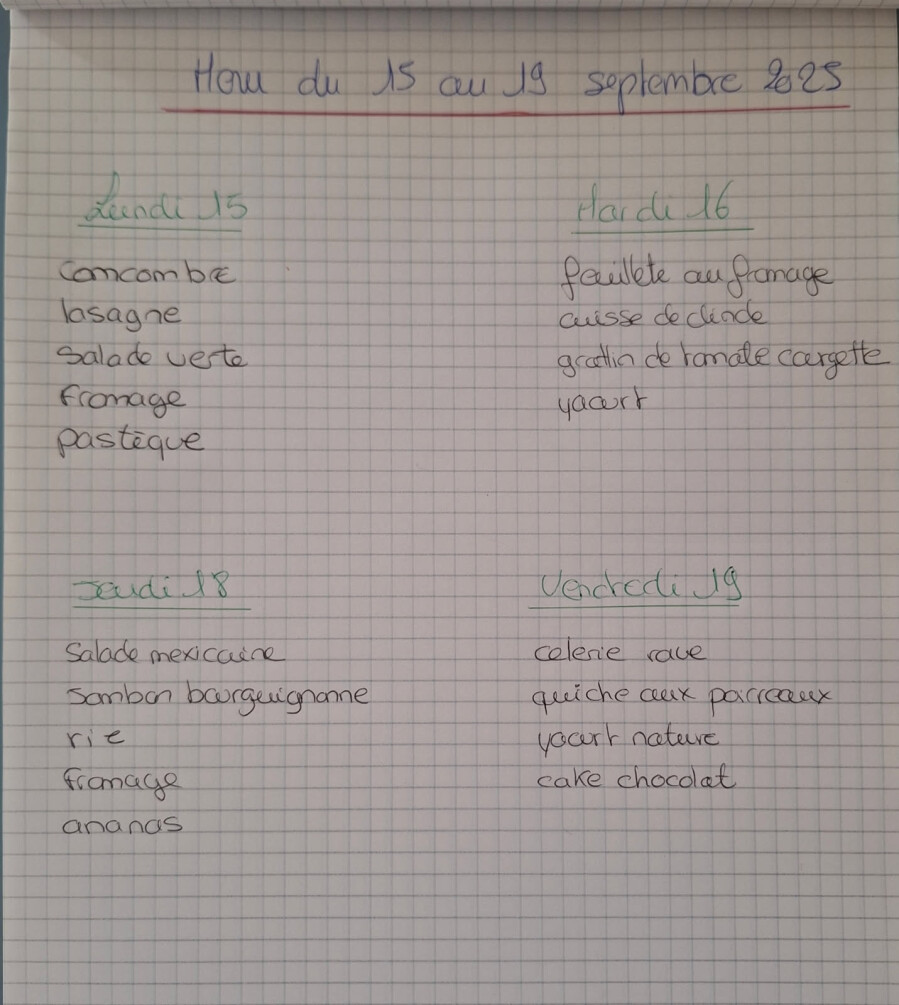 Menu du 15 au 19 septembre 2025
Lundi 15
concombre
lasagne
Salade verte
fromage
pastèque
Mardi 16
feuillete au fromage
cuisse de dinde
gratin de tomate courgette
yaourt
Jeudi 18
Salade mexicaine
Jambon bourguignonne
riz
fromage
ananas
Vendredi 19
celerie rave
quiche aux poirreaux
yaourt nature
cake chocolat